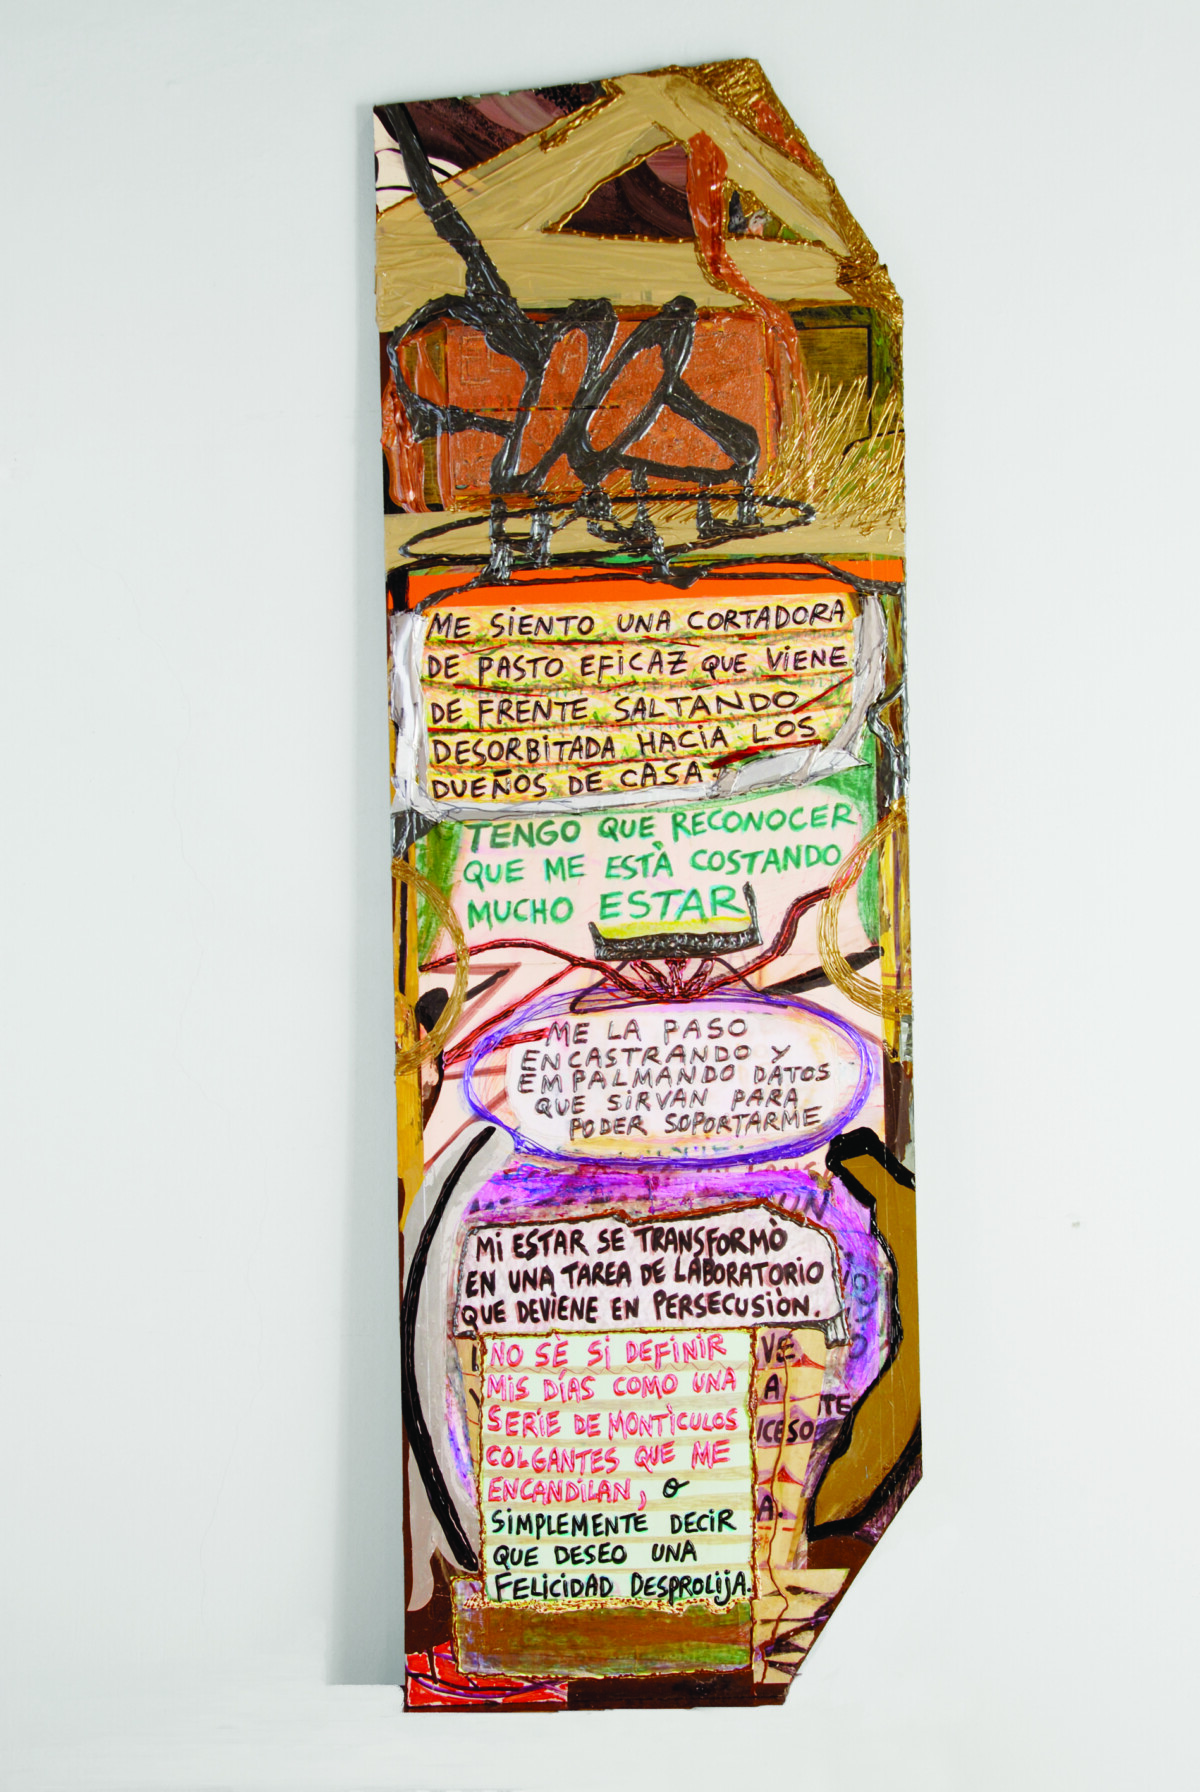 ME SIENTO UNA CORTADORA
DE PASTO EFICAZ QUE VIENE
DE FRENTE SALTANDO
DESORBITADA HACIA LOS
DUEÑOS DE CASA.
TENGO QUE RECONOCER
QUE ME ESTÀ COSTANDO
MUCHO ESTAR
ME LA PASO
ENCASTRANDO Y
EMPALMANDO DATOS
QUE SIRVAN PARA
PODER SOPORTARME
MI ESTAR SE TRANSFORMÒ
EN UNA TAREA DE LABORATORIO
QUE DEVIENE EN PERSECUSIÒN.
NO SÈ SI DEFINIR
MIS DÍAS COMO UNA
SERIE DE MONTÌCULOS
COLGANTES QUE ME
ENCANDILAN, O
SIMPLEMENTE DECIR
QUE DESEO UNA
FELICIDAD DESPROLIJA.
VE
A
TE
CESO
A.